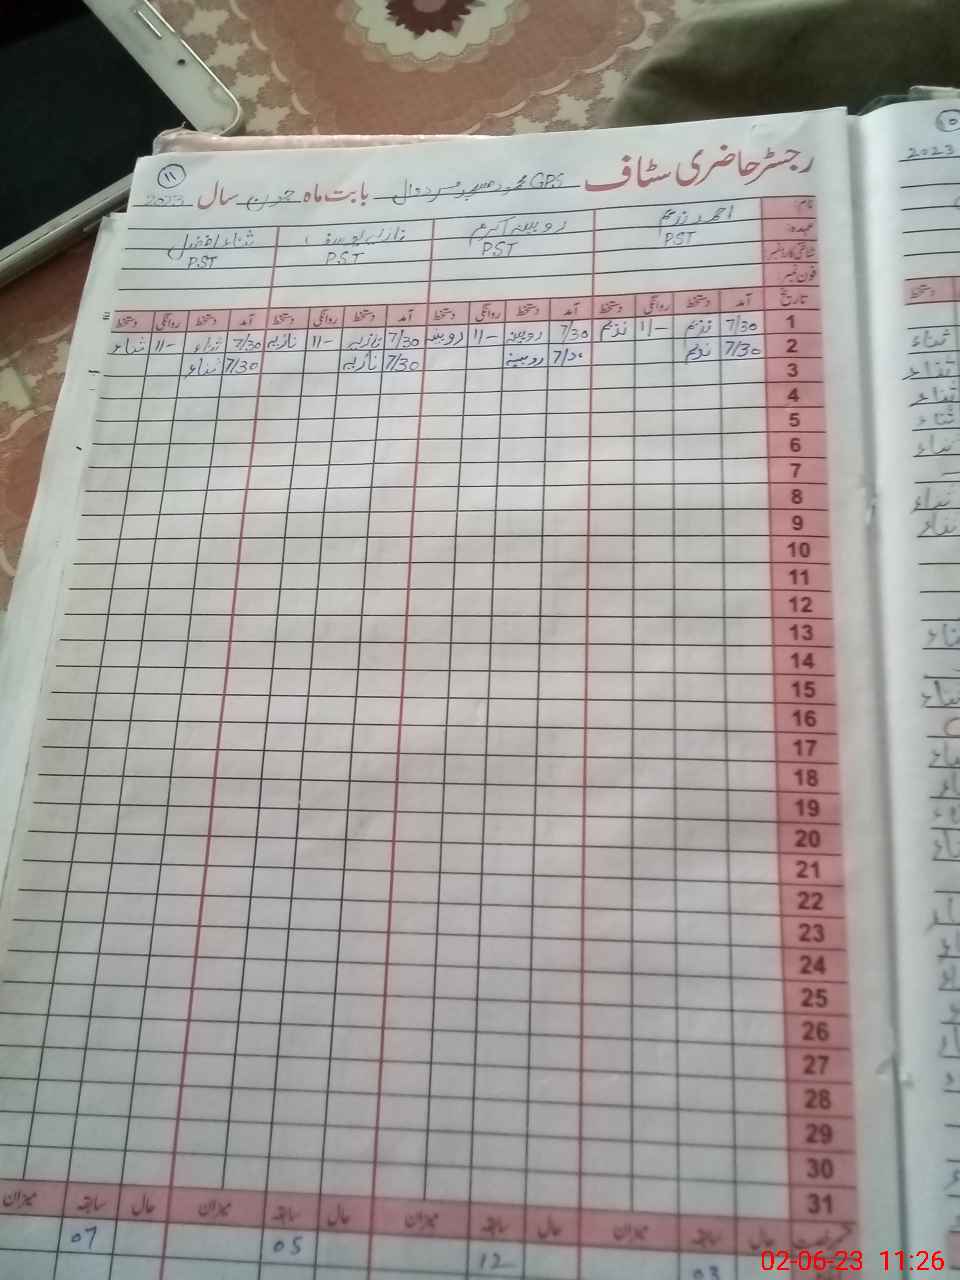 رجسٹر حاضری سٹاف
۱۱
GPS محمود مسجد بابت ماہ جون سال 2023
نام: احمد ندیم روبینہ اکرم نازیہ یوسف ثناء افضل
عہدہ: PST PST PST PST
شناختی کارڈ نمبر:
فون نمبر:
تاریخ آمد دستخط روانگی دستخط آمد دستخط روانگی دستخط آمد دستخط روانگی دستخط آمد دستخط روانگی دستخط
1 7/30 ندیم 11/- ندیم 7/30 روبینہ 11/- روبینہ 7/30 نازیہ 11/- نازیہ 7/30 ثناء 11/- ثناء
2 7/30 ندیم 7/30 روبینہ 7/30 نازیہ 7/30 ثناء
3
4
5
6
7
8
9
10
11
12
13
14
15
16
17
18
19
20
21
22
23
24
25
26
27
28
29
30
31
حال سابقہ میزان حال سابقہ میزان حال سابقہ میزان حال سابقہ میزان
03 12 05 07
2023
دستخط
ثناء
ثناء
ثناء
ثناء
ثناء
ثناء
ثناء
02-06-23 11:26